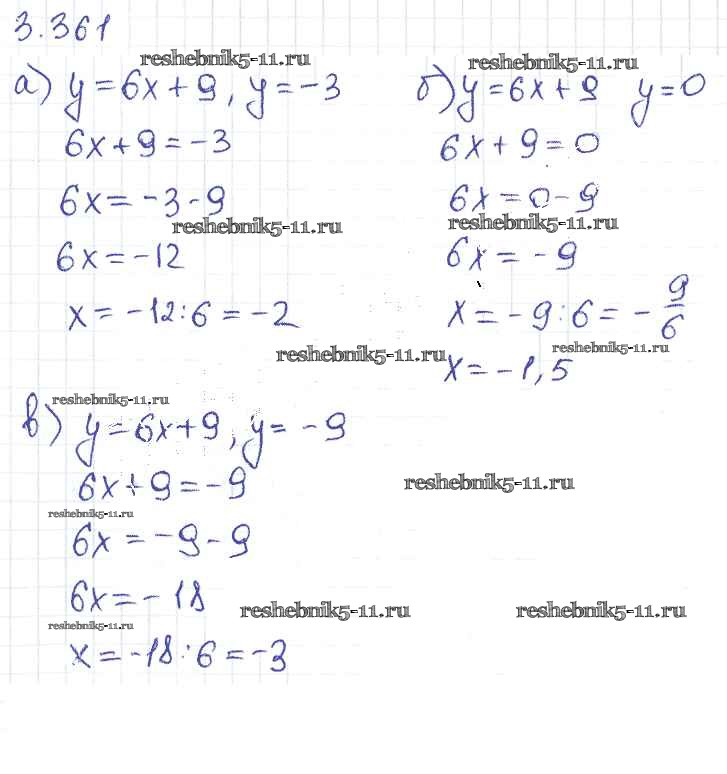 3.361
reshebnik5-11.ru
а) y = 6x + 9, y = -3
6x + 9 = -3
6x = -3 - 9
reshebnik5-11.ru
6x = -12
x = -12 : 6 = -2
reshebnik5-11.ru
reshebnik5-11.ru
б) y = 6x + 9 y = 0
6x + 9 = 0
6x = 0 - 9
reshebnik5-11.ru
6x = -9
x = -9 : 6 = -9/6
reshebnik5-11.ru
x = -1,5
reshebnik5-11.ru
в) y = 6x + 9, y = -9
6x + 9 = -9
reshebnik5-11.ru
reshebnik5-11.ru
6x = -9 - 9
6x = -18
reshebnik5-11.ru
reshebnik5-11.ru
reshebnik5-11.ru
x = -18 : 6 = -3